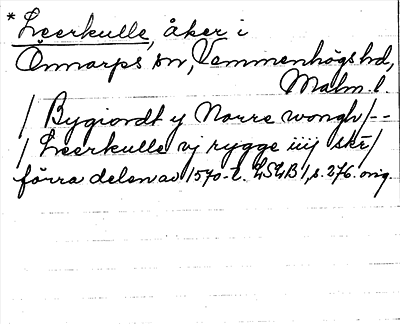 * Leerkulle, åker i
Önnarps sn, Vemmenhögs hd,
Malm. l.
/ Bygiordt y Norre wongh/--
/ Leerkulle vj rygge iiij skr/
förra delen av 1570-t. LSLB 1, s. 276. orig.